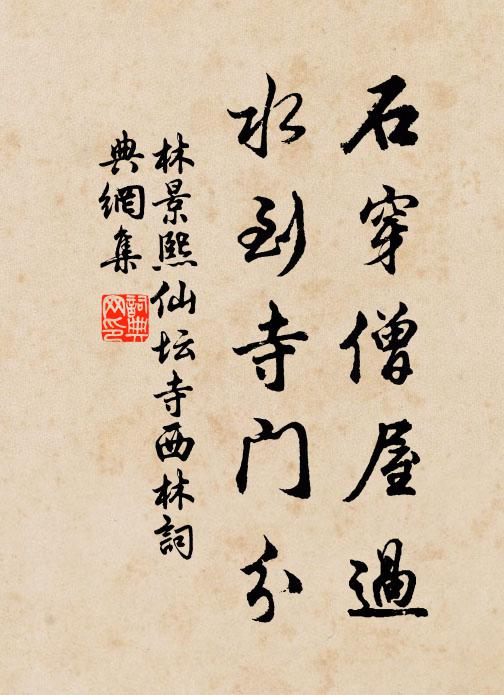 石穿僧屋過
水到寺门分
林景熙仙坛寺西林詞
典網集
詞典
网印